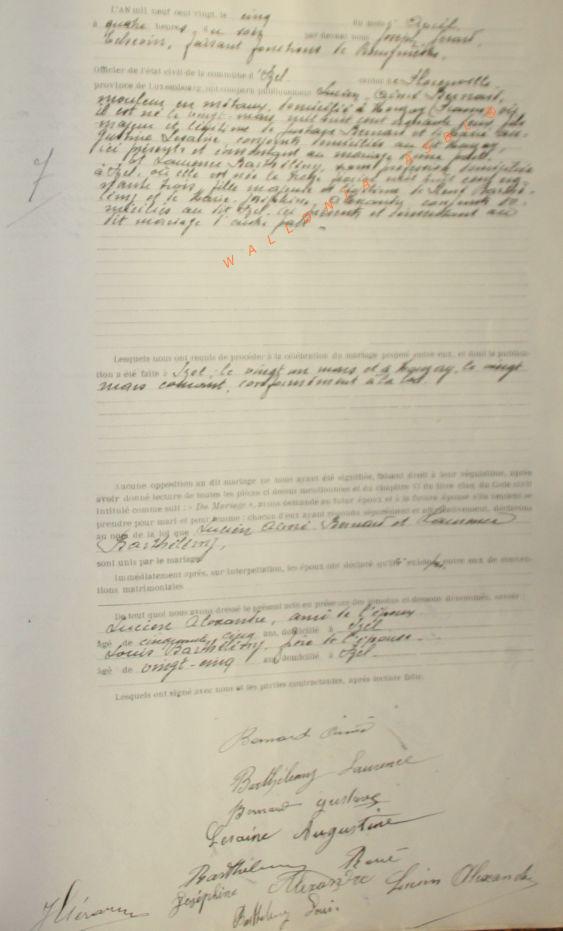 L'AN mil neuf cent vingt, le cinq du mois d'Avril
à quatre heures du soir par devant nous Joseph
Echevin, faisant fonctions de Bourgmestre,
Officier de l'état civil de la commune d'Izel canton de Florenville
province de Luxembourg, ont comparu publiquement Lucien, Bernard,
mouleur en métaux, domicilié à (France) où
il est né le vingt mars mil huit cent
majeur et légitime de Bernard et de
conjoints domiciliés au dit
ici présents et consentant au mariage d'une part.
et Laurence Barthélemy, sans profession domiciliée
à Izel, où elle est née le treize mil huit cent
trois, fille majeure et légitime de René Barthé-
lemy et de Marie, Joséphine, Alexandre, conjoints do-
miciliés au dit Izel, ici présents et consentant au
dit mariage d'autre part.
7
WALLONIA ASBL
Lesquels nous ont requis de procéder à la célébration du mariage projeté entre eux, et dont la publica-
tion a été faite à Izel, le vingt un mars et à le vingt
mars courant, conformément à la loi.
Aucune opposition au dit mariage ne nous ayant été signifiée, faisant droit à leur réquisition, après
avoir donné lecture de toutes les pièces ci dessus mentionnées et du chapitre VI du livre cinq du Code civil
intitulé comme suit : « Du Mariage », avons demandé au futur époux et à la future épouse s'ils veulent se
prendre pour mari et pour femme : chacun d'eux ayant répondu séparément et affirmativement, déclarons
au nom de la loi que Lucien Bernard et Laurence
Barthélemy,
sont unis par le mariage
Immédiatement après, sur interpellation, les époux ont déclaré qu'il entre eux de conven-
tions matrimoniales
De tout quoi nous avons dressé le présent acte en présence des témoins ci dessous dénommés, savoir :
Lucien Alexandre, ami de l'époux
âgé de cinquante cinq ans, domicilié à Izel
Louis Barthélemy, frère de l'épouse
âgé de vingt-cinq ans, domicilié à Izel
Lesquels ont signé avec nous et les parties contractantes, après lecture faite.
Bernard
Barthélemy Laurence
Bernard Gustave
Leraine Augustine
Barthélemy René
Joséphine Alexandre Lucien Alexandre
Barthélemy Louis